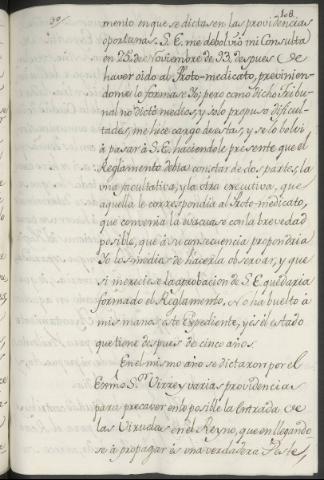 29/.
108
mento in que se dictasen las providencias
oportunas. S. E. me debolvió mi Consulta
en 25, de Noviembre de 93, despues de
haver oido al Proto-medicato, previnien-
dome lo formase Yo; pero como dicho Tribu-
nal no dictó medios, y solo propuso dificul-
tades, me hice cargo de estas, y se lo bolví
à pasar à S. E. haciendole presente que el
Reglamento debía constar de dos partes, la
una facultativa, y la otra executiva, que
aquella le correspondía al Proto-medicato,
que convenía la evacuase con la brevedad
posible, que à su consecuencia propondría
Yo los medios de hacerla observar, y que
si merecíese la aprobacion de S. E. quedaría
formado el Reglamento. No ha buelto à
mis manos este Expediente, y és el estado
que tiene despues de cinco años.
En el mismo año se dictaron por el
Exmo. Sor. Virrey varias providencias
para precaver en lo posible la entrada de
las Viruelas en el Reyno, que en llegando
se à propagar és una verdadera Peste,